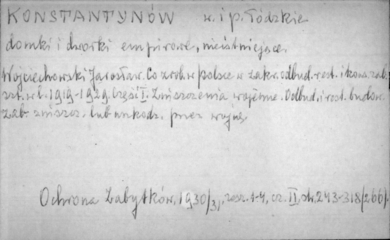 KONSTANTYNÓW w. i p. Łódzkie
domki i dworki empirowe, nieistniejące
Wojciechowski Jarosław. Co zrob. w Polsce w zakr. odbud. rest. i konserw. zab.
szt. w l. 1919-1929. Część I. Zniszczenia wojenne. Odbud. i rest. budow.
zab. zniszcz. lub uszkodz. przez wojnę,
Ochrona Zabytków, 1930/31, zesz. 1-4, cz. II, str. 243-318/266/.